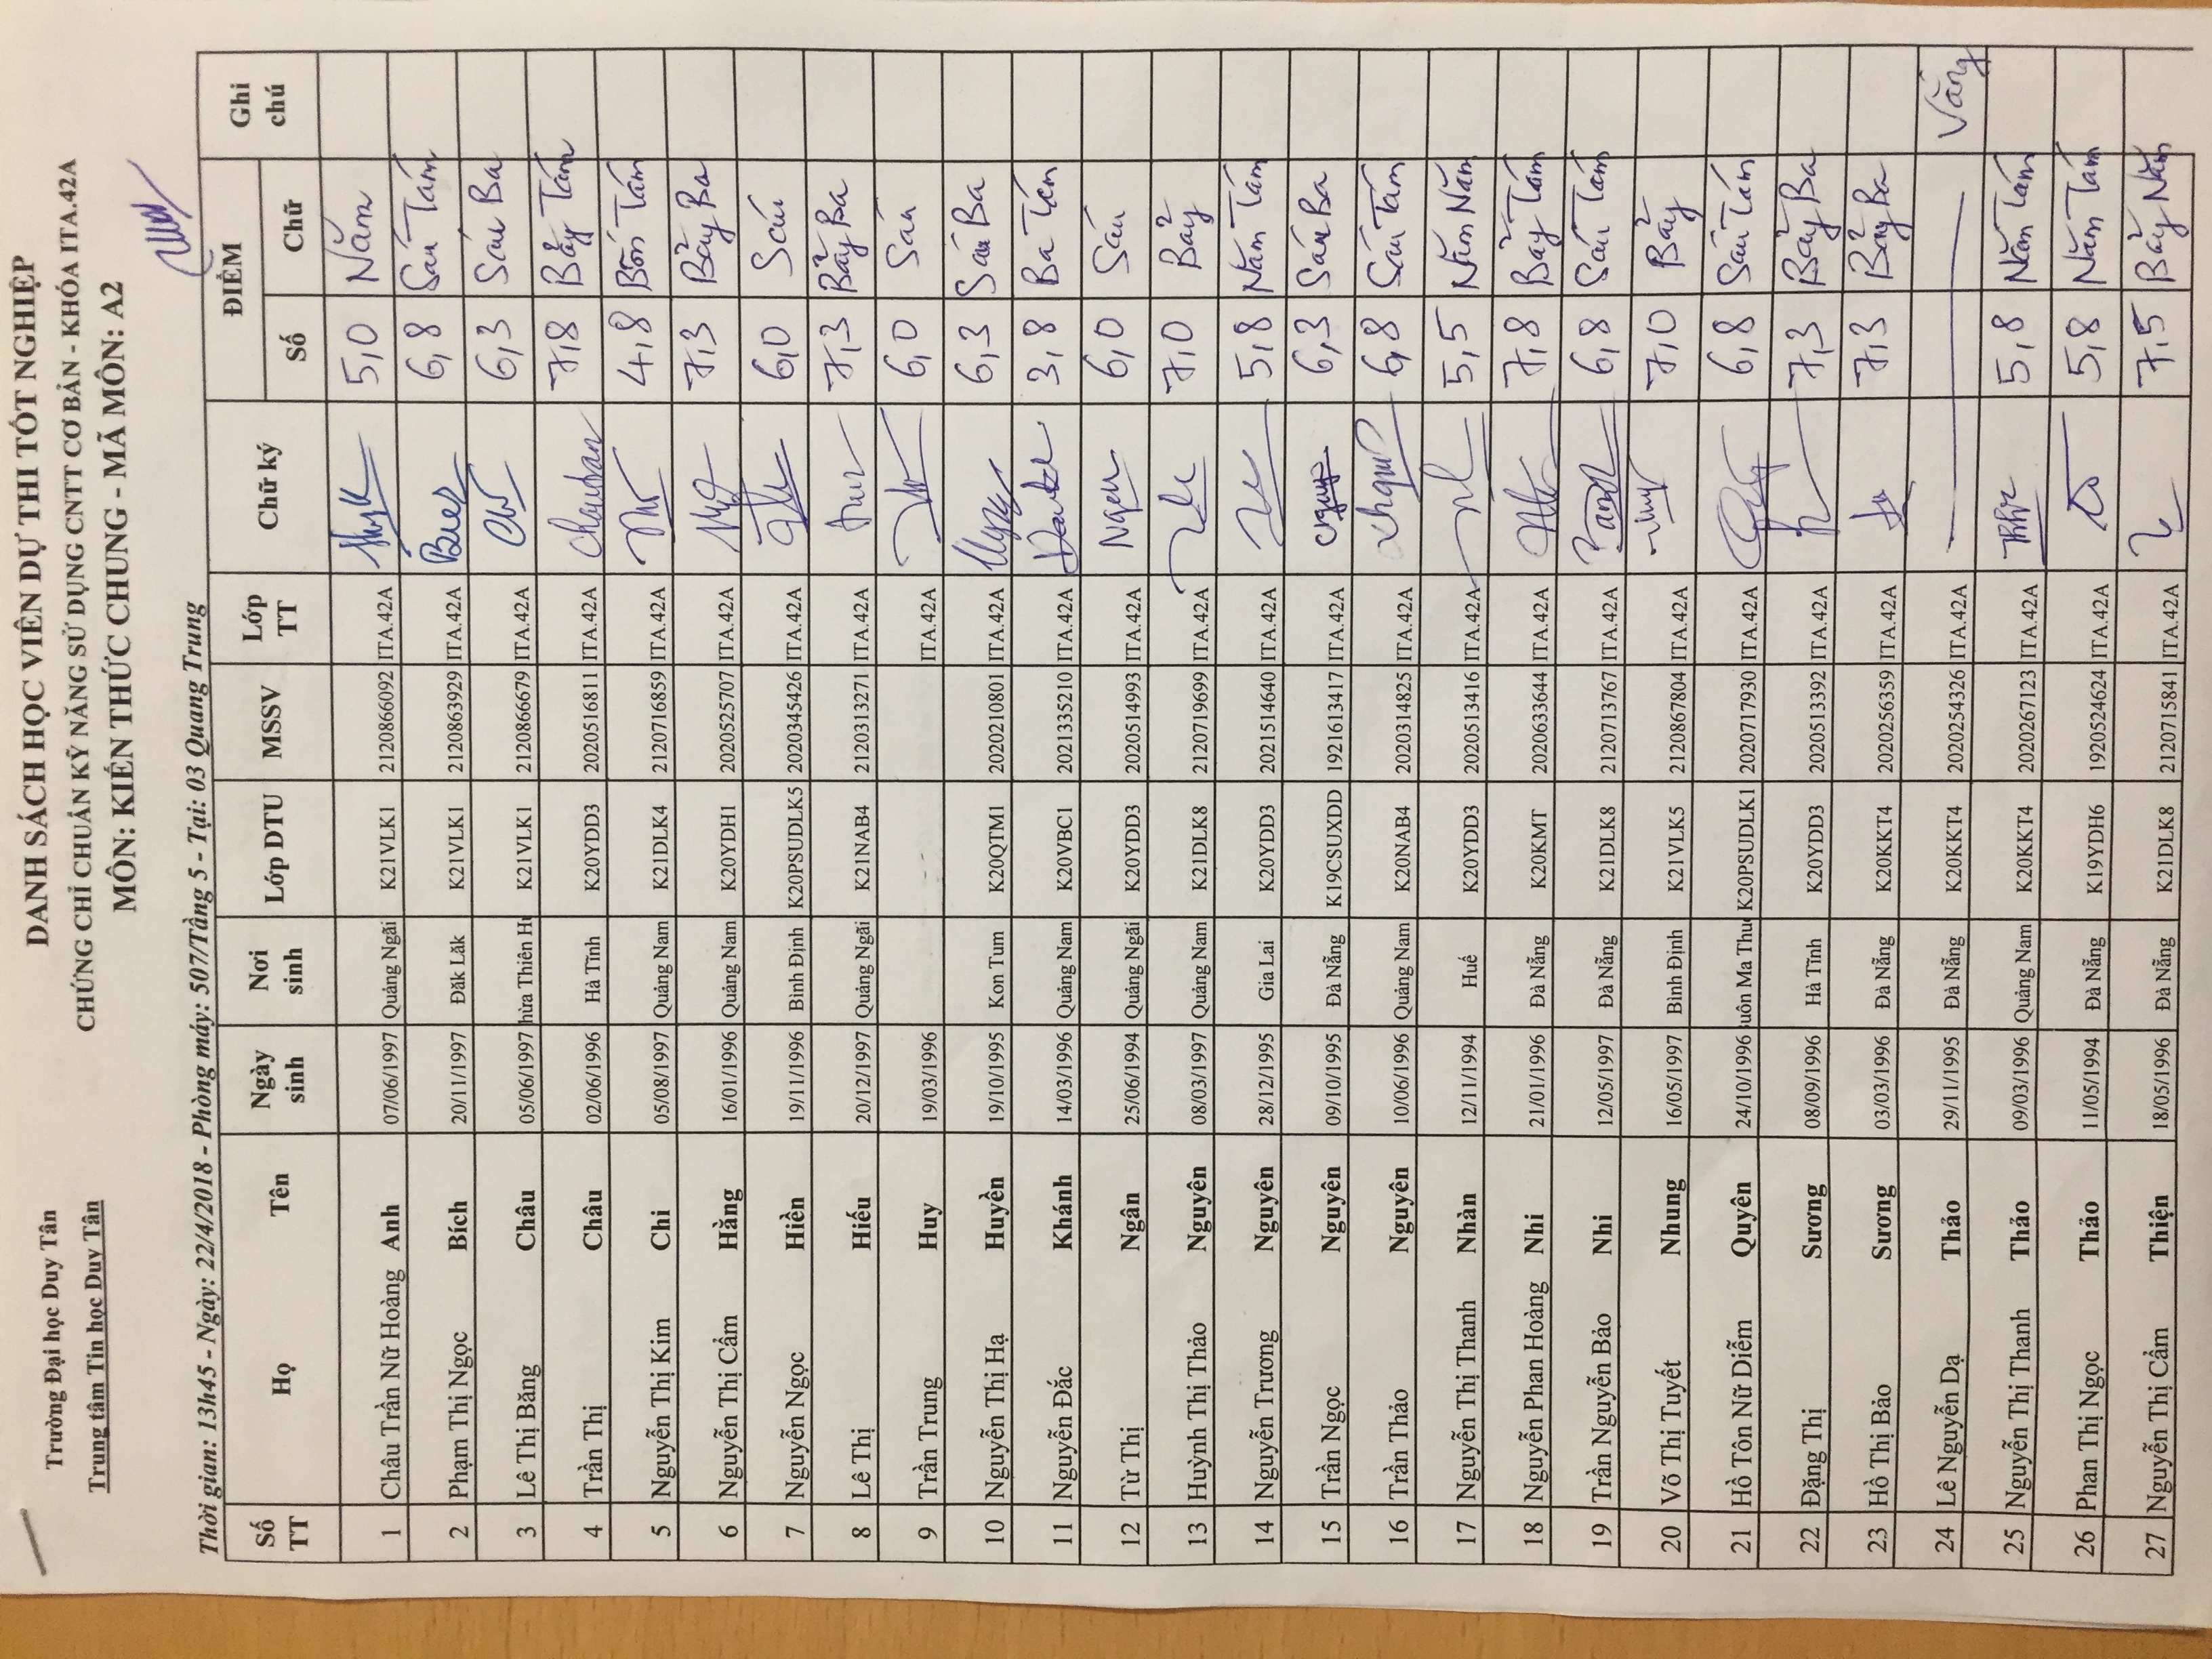 Trường Đại học Duy Tân
Trung tâm Tin học Duy Tân
DANH SÁCH HỌC VIÊN DỰ THI TỐT NGHIỆP
CHỨNG CHỈ CHUẨN KỸ NĂNG SỬ DỤNG CNTT CƠ BẢN - KHÓA ITA.42A
MÔN: KIẾN THỨC CHUNG - MÃ MÔN: A2
Thời gian: 13h45 - Ngày: 22/4/2018 - Phòng máy: 507/Tầng 5 - Tại: 03 Quang Trung
Số TT Họ Tên Ngày sinh Nơi sinh Lớp DTU MSSV Lớp TT Chữ ký ĐIỂM Số Chữ Ghi chú
1 Châu Trần Nữ Hoàng Anh 07/06/1997 Quảng Ngãi K21VLK1 2120866092 ITA.42A 5,0 Năm
2 Phạm Thị Ngọc Bích 20/11/1997 Đăk Lăk K21VLK1 2120863929 ITA.42A 6,8 Sáu Tám
3 Lê Thị Băng Châu 05/06/1997 hừa Thiên Hu K21VLK1 2120866679 ITA.42A 6,3 Sáu Ba
4 Trần Thị Châu 02/06/1996 Hà Tĩnh K20YDD3 2020516811 ITA.42A 7,8 Bảy Tám
5 Nguyễn Thị Kim Chi 05/08/1997 Quảng Nam K21DLK4 2120716859 ITA.42A 4,8 Bốn Tám
6 Nguyễn Thị Cẩm Hằng 16/01/1996 Quảng Nam K20YDH1 2020525707 ITA.42A 7,3 Bảy Ba
7 Nguyễn Ngọc Hiền 19/11/1996 Bình Định K20PSUDLK5 2020345426 ITA.42A 6,0 Sáu
8 Lê Thị Hiếu 20/12/1997 Quảng Ngãi K21NAB4 2120313271 ITA.42A 7,3 Bảy Ba
9 Trần Trung Huy 19/03/1996 ITA.42A 6,0 Sáu
10 Nguyễn Thị Hạ Huyền 19/10/1995 Kon Tum K20QTM1 2020210801 ITA.42A 6,3 Sáu Ba
11 Nguyễn Đắc Khánh 14/03/1996 Quảng Nam K20VBC1 2021335210 ITA.42A 3,8 Ba Tám
12 Từ Thị Ngân 25/06/1994 Quảng Ngãi K20YDD3 2020514993 ITA.42A Ngân 6,0 Sáu
13 Huỳnh Thị Thảo Nguyên 08/03/1997 Quảng Nam K21DLK8 2120719699 ITA.42A 7,0 Bảy
14 Nguyễn Trương Nguyên 28/12/1995 Gia Lai K20YDD3 2021514640 ITA.42A 5,8 Năm Tám
15 Trần Ngọc Nguyên 09/10/1995 Đà Nẵng K19CSUXDD 1921613417 ITA.42A 6,3 Sáu Ba
16 Trần Thảo Nguyên 10/06/1996 Quảng Nam K20NAB4 2020314825 ITA.42A 6,8 Sáu Tám
17 Nguyễn Thị Thanh Nhàn 12/11/1994 Huế K20YDD3 2020513416 ITA.42A 5,5 Năm Năm
18 Nguyễn Phan Hoàng Nhi 21/01/1996 Đà Nẵng K20KMT 2020633644 ITA.42A 7,8 Bảy Tám
19 Trần Nguyễn Bảo Nhi 12/05/1997 Đà Nẵng K21DLK8 2120713767 ITA.42A 6,8 Sáu Tám
20 Võ Thị Tuyết Nhung 16/05/1997 Bình Định K21VLK5 2120867804 ITA.42A 7,0 Bảy
21 Hồ Tôn Nữ Diễm Quyên 24/10/1996 uôn Ma Thuộ K20PSUDLK1 2020717930 ITA.42A 6,8 Sáu Tám
22 Đặng Thị Sương 08/09/1996 Hà Tĩnh K20YDD3 2020513392 ITA.42A 7,3 Bảy Ba
23 Hồ Thị Bảo Sương 03/03/1996 Đà Nẵng K20KKT4 2020256359 ITA.42A 7,3 Bảy Ba
24 Lê Nguyễn Dạ Thảo 29/11/1995 Đà Nẵng K20KKT4 2020254326 ITA.42A Vắng
25 Nguyễn Thị Thanh Thảo 09/03/1996 Quảng Nam K20KKT4 2020267123 ITA.42A 5,8 Năm Tám
26 Phan Thị Ngọc Thảo 11/05/1994 Đà Nẵng K19YDH6 1920524624 ITA.42A 5,8 Năm Tám
27 Nguyễn Thị Cẩm Thiện 18/05/1996 Đà Nẵng K21DLK8 2120715841 ITA.42A 7,5 Bảy Năm